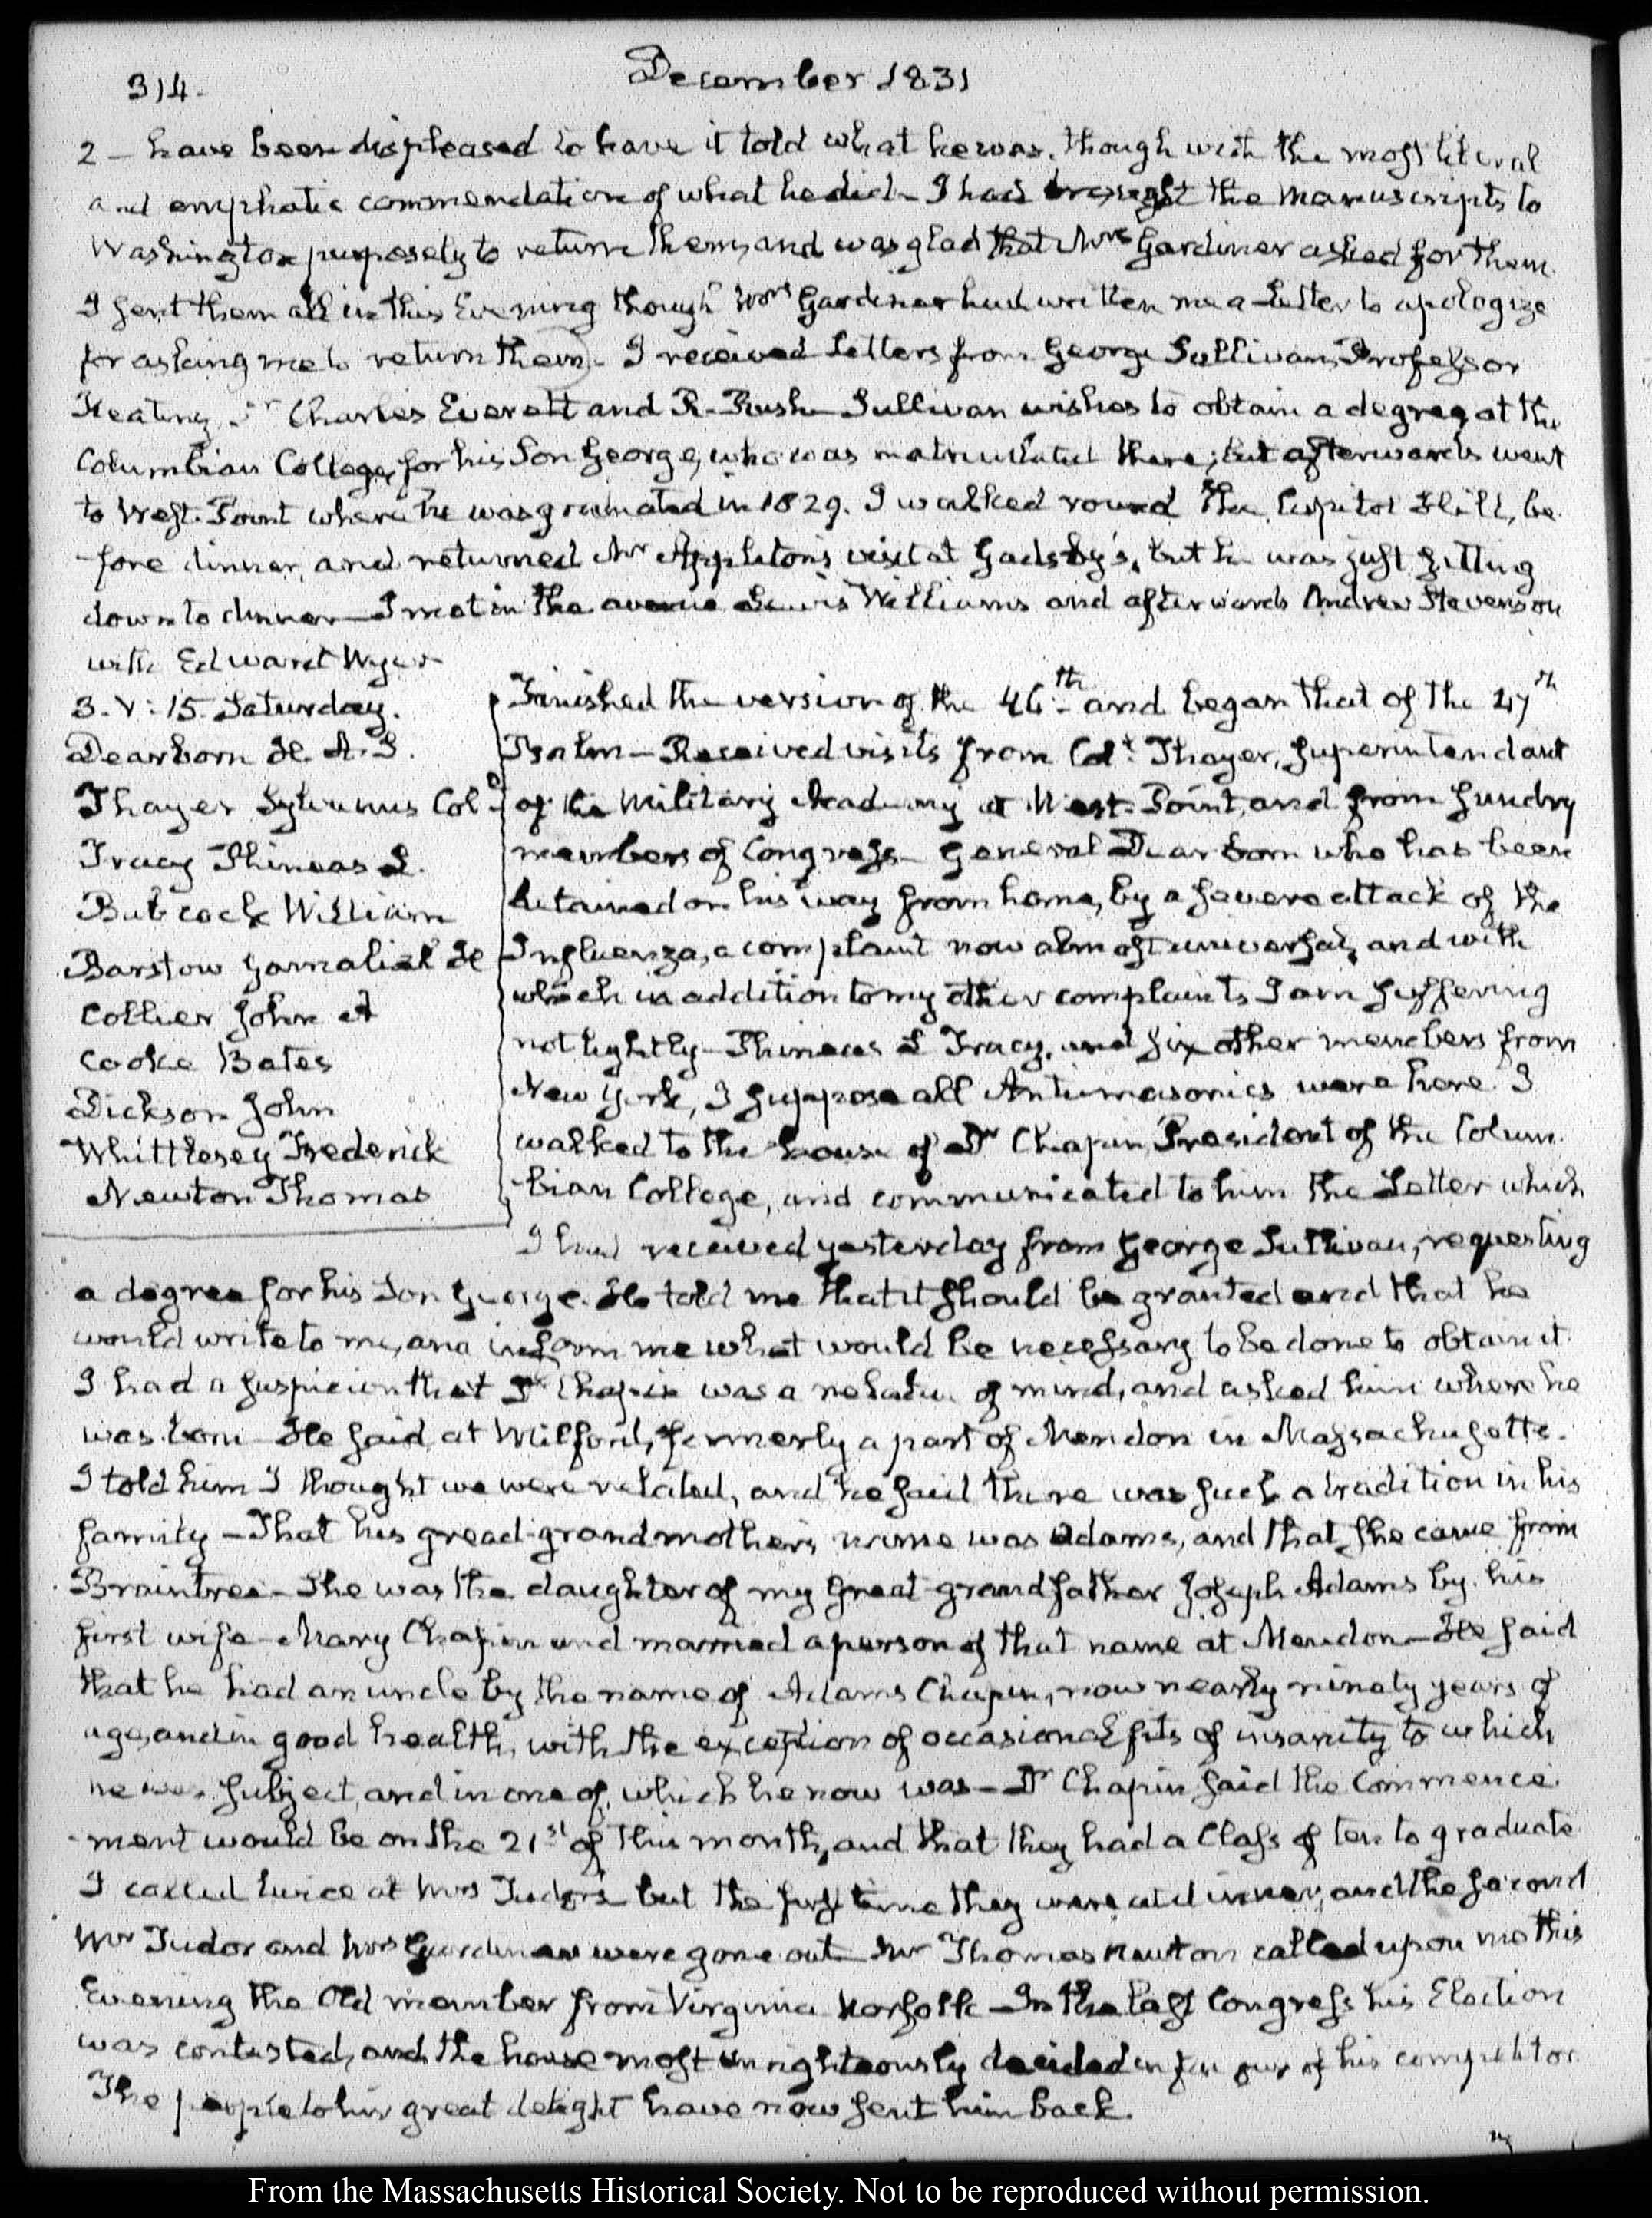 314.
December 1831
2 – have been displeased to have it told what he was, though with the most liberal
and emphatic commendation of what he did – I had brought the Manuscripts to
Washington purposely to return them, and was glad that Mrs Gardiner asked for them
I sent them all in this Evening though Mrs Gardiner had written me a Letter to apologize
for asking me to return them). I received Letters from George Sullivan, Professor
Keating, Dr Charles Everett and R. Rush – Sullivan wishes to obtain a degree, at the
Columbian College, for his Son George, who was matriculated there; but afterwards went
to West-Point where he was graduated in 1829. I walked round the Capitol Hill, be-
-fore dinner, and returned Mr Appleton's visit at Gadsby's, but he was just sitting
down to dinner – I met in the avenue Lewis Williams and afterwards Andrew Stevenson
with Edward Wyer
3. V: 15. Saturday.
Dearborn H. A. S.
Thayer Sylvanus Coll
Tracy Phineas L.
Babcock William
Barstow Gamaliel H
Collier John A
Cooke Bates
Dickson John
Whittlesey Frederick
Newton Thomas
Finished the version of the 46th and began that of the 47th
Psalm – Received visits from Colt Thayer, Superintendant
of the Military Academy at West-Point, and from sundry
members of Congress – General Dearborn who has been
detained on his way from home, by a severe attack of the
Influenza, a complaint now almost universal, and with
which in addition to my other complaints I am suffering
not lightly – Phineas L Tracy, and six other members from
New York, I suppose all Antimasonics were here. I
walked to the house of Dr Chapin, President of the Colum-
bian College, and communicated to him the Letter which
I had received yesterday from George Sullivan, requesting
a degree for his Son George. He told me that it should be granted and that he
would write to me, and inform me what would be necessary to be done to obtain it.
I had a suspicion that Dr Chapin was a relation of mind, and asked him where he
was born – He said, at Milford, formerly a part of Mendon in Massachusetts.
I told him I thought we were related, and he said there was such a tradition in his
family – That his gread-grandmother's name was Adams, and that she came from
Braintree – She was the daughter of my great-grandfather Joseph Adams by his
first wife – Mary Chapin and married a person of that name at Mendon – He said
that he had an uncle by the name of Adams Chapin, now nearly ninety years of
age, and in good health, with the exception of occasional fits of insanity to which
he was subject, and in one of which he now was – Dr Chapin said the Commence-
-ment would be on the 21st of this month, and that they had a Class of ten to graduate
I called twice at Mrs Tudor's but the first time they were at dinner, and the second
Mr Tudor and Mrs Gardiner were gone out – Mr Thomas Newton called upon me this
Evening the Old member from Virginia Norfolk – In the last Congress his Election
was contested, and the house most unrighteously decided in favour of his competitor
The people to his great delight have now sent him back.
From the Massachusetts Historical Society. Not to be reproduced without permission.